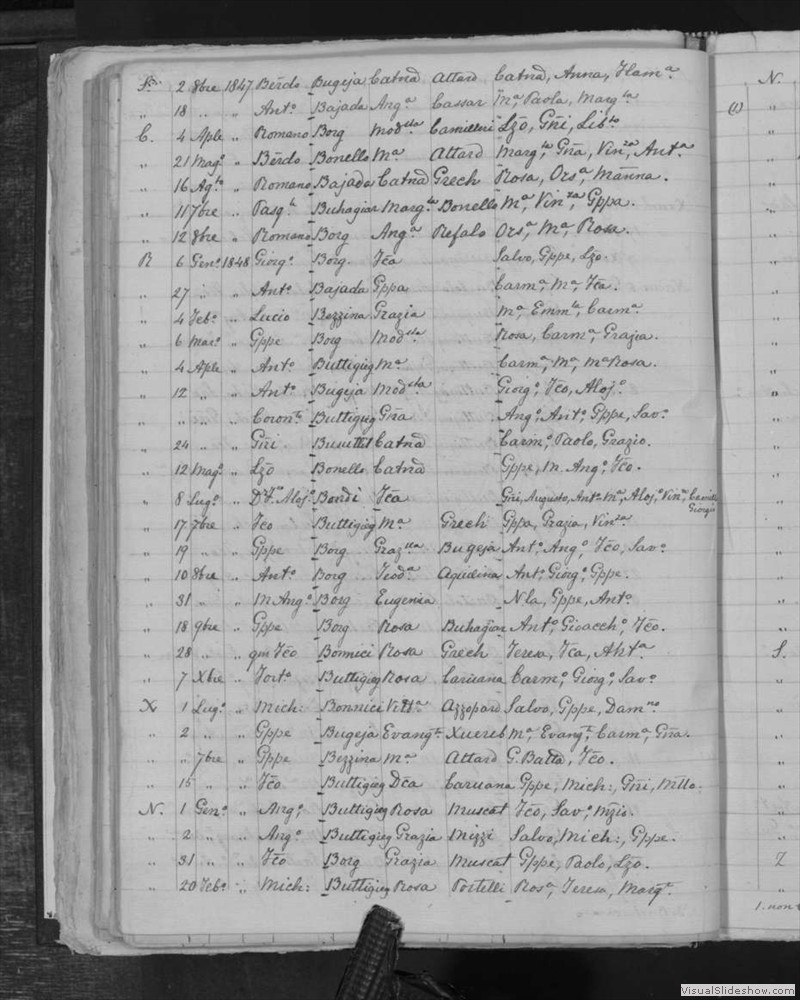 2 8bre 1847 Bērdo Bugeja Catnā Attard Catnā, Anna, Flamᵃ
N.
" 18 " " Antᵒ Bajada Angᵃ Cassar Mᵃ, Paola, Margᵗᵃ
(1)
C. 4 Aple " Romano Borg Modˢᵗᵃ Camilleri Lzō, Gr̄i, Libᵗᵒ
" 21 Magᵒ " Bērdo Bonello Mᵃ Attard Margᵗᵃ, Gr̄a, Vinᶻᵃ, Antᵃ
" 16 Agᵗᵒ " Romano Bajada Catnā Grech Rosa, Orsᵃ, Marīna.
" 11 7bre " Pasqᵉ Buhagiar Margᵗᵃ Bonello Mᵃ, Vinᶻᵃ, Gppa.
" 12 8bre " Romano Borg Angᵃ Refalo Orsᵃ, Mᵃ, Rosa.
R 6 Genᵒ 1848 Giorgᵒ Borg Fc̄a Salvo, Gppe, Lzo.
" 27 " " Antᵒ Bajada Gppa Carmᵃ, Mᵃ, Fc̄a.
" 4 Febᵒ " Lucio Bezzina Grazia Mᵃ, Emmˡᵃ, Carmᵃ
" 6 Marᵒ " Gppe Borg Modˢᵗᵃ Rosa, Carmᵃ, Grazia.
" 4 Aple " Antᵒ Buttigieg Mᵃ Carmᵃ, Mᵃ, Mᵃ Rosa.
" 12 " " Antᵒ Bugeja Modˢᵗᵃ Giorgᵒ, Fco, Alojᵒ
" " " " Coronᵗᵒ Buttigieg Gr̄a Angᵒ, Antᵒ, Gppe, Savᵒ.
" 24 " " Gr̄i Busuttil Catnā Carmᵒ, Paolo, Grazio.
" 12 Magᵒ " Lzō Bonello Catnā Gppe, M. Angᵒ, Fc̄o.
" 8 Lugᵒ " Alojᵒ Bondi Fc̄a Gr̄i, Augusto, Antᵒ, Mᵃ, Alojᵒ, Vinᶻᵒ, Camillo
Giorgio
" 17 7bre " Fco Buttigieg Mᵃ Grech Gppa, Grazia, Vinᶻᵃ.
" 19 " " Gppe Borg Grazˡˡᵃ Bugeja Antᵒ, Angᵒ, Fc̄o, Savᵒ
" 10 8bre " Antᵒ Borg Teodᵃ Aquilina Antᵒ, Giorgᵒ, Gppe.
" 31 " " M. Angᵒ Borg Eugenia Nla, Gppe, Antᵒ
" 18 9bre " Gppe Borg Rosa Buhagiar Antᵒ, Gioacchᵒ, Fc̄o.
" 28 " " qm Fc̄o Bonnici Rosa Grech Teresa, Fca, Antᵃ
S.
" 7 Xbre " Fortᵒ Buttigieg Rosa Caruana Carmᵒ, Giorgᵒ, Savᵒ
X 1 Lugᵒ " Mich: Bonnici Vittᵃ Azzopard Salvo, Gppe, Damⁿᵒ
" 2 " " Gppe Bugeja Evangᵗᵃ Xuereb Mᵃ, Evangᵗᵃ, Carmᵃ, Gr̄a.
" " 7bre " Gppe Bezzina Mᵃ Attard G. Batta, Fc̄o.
" 15 " " Fc̄o Buttigieg Dc̄a Caruana Gppe, Mich:, Gr̄i, Mllo.
N. 1 Genᵒ " Angᵒ Buttigieg Rosa Muscat Fc̄o, Savᵒ, Nzio.
" 2 " " Angᵒ Buttigieg Grazia Mizzi Salvo, Mich:, Gppe.
" 31 " " Fc̄o Borg Grazia Muscat Gppe, Paolo, Lzo.
" 20 Febᵒ " Mich: Buttigieg Rosa Portelli Rosᵃ, Teresa, Margᵗᵃ
1. non
VisualSlideshow.com